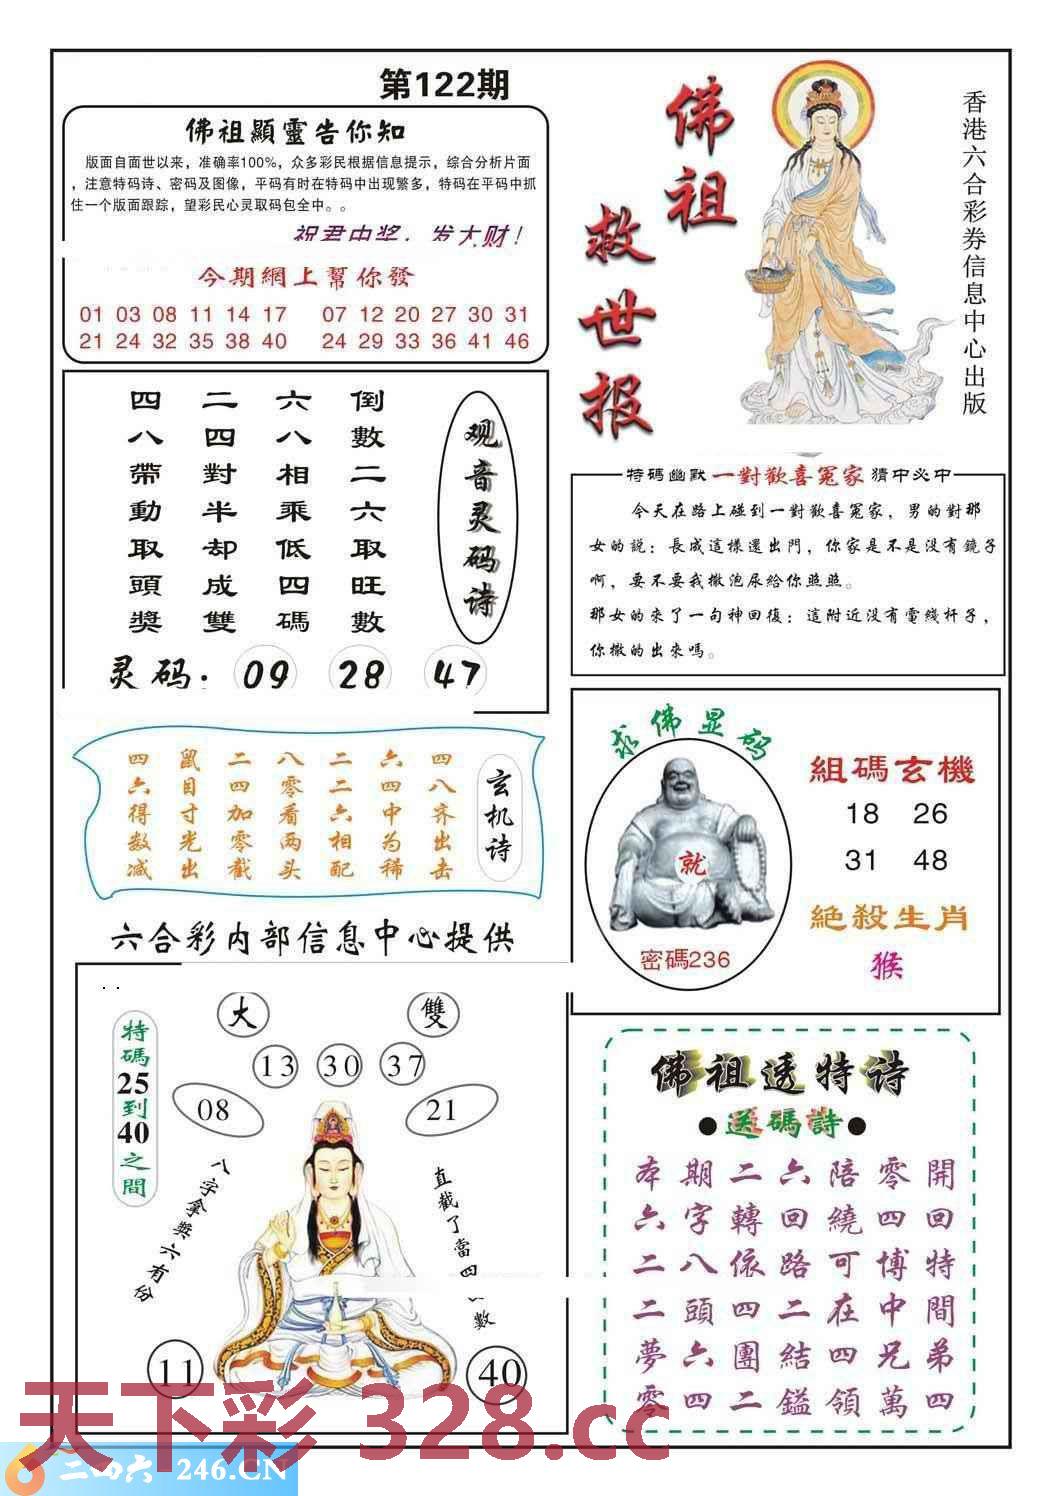 第122期
佛祖顯靈告你知
版面自面世以来，准确率100%，众多彩民根据信息提示，综合分析片面
，注意特码诗、密码及图像，平码有时在特码中出现繁多，特码在平码中抓
住一个版面跟踪，望彩民心灵取码包全中。。
祝君中奖，发大财！
今期網上幫你發
01 03 08 11 14 17 07 12 20 27 30 31
21 24 32 35 38 40 24 29 33 36 41 46
佛祖
救世报
香港六合彩券信息中心出版
观音灵码诗
倒數二六取旺數
六八相乘低四碼
二四對半却成雙
四八帶動取頭獎
灵码：09 28 47
特碼幽默一對歡喜冤家猜中必中
今天在路上碰到一對歡喜冤家，男的對那
女的說：長成這樣還出門，你家是不是没有鏡子
啊，要不要我撒泡尿給你照照。
那女的來了一句神回復：這附近没有電线杆子，
你撒的出來嗎。
玄机诗
四八齐出击
六四中为稀
二二六相配
八零看两头
二四加零截
鼠目寸光出
四六得数减
求佛显码
就
密碼236
組碼玄機
18 26
31 48
絶殺生肖
猴
六合彩内部信息中心提供
大
雙
13 30 37
08 21
特碼25到40之間
八字拿奖六有份
直截了當四
數
11 40
佛祖透特诗
●送碼詩●
本期二六陪零開
六字轉回繞四回
二八依路可博特
二頭四二在中間
夢六團結四兄弟
零四二鎰領萬四
天下彩 328.cc
二四六 246.CN